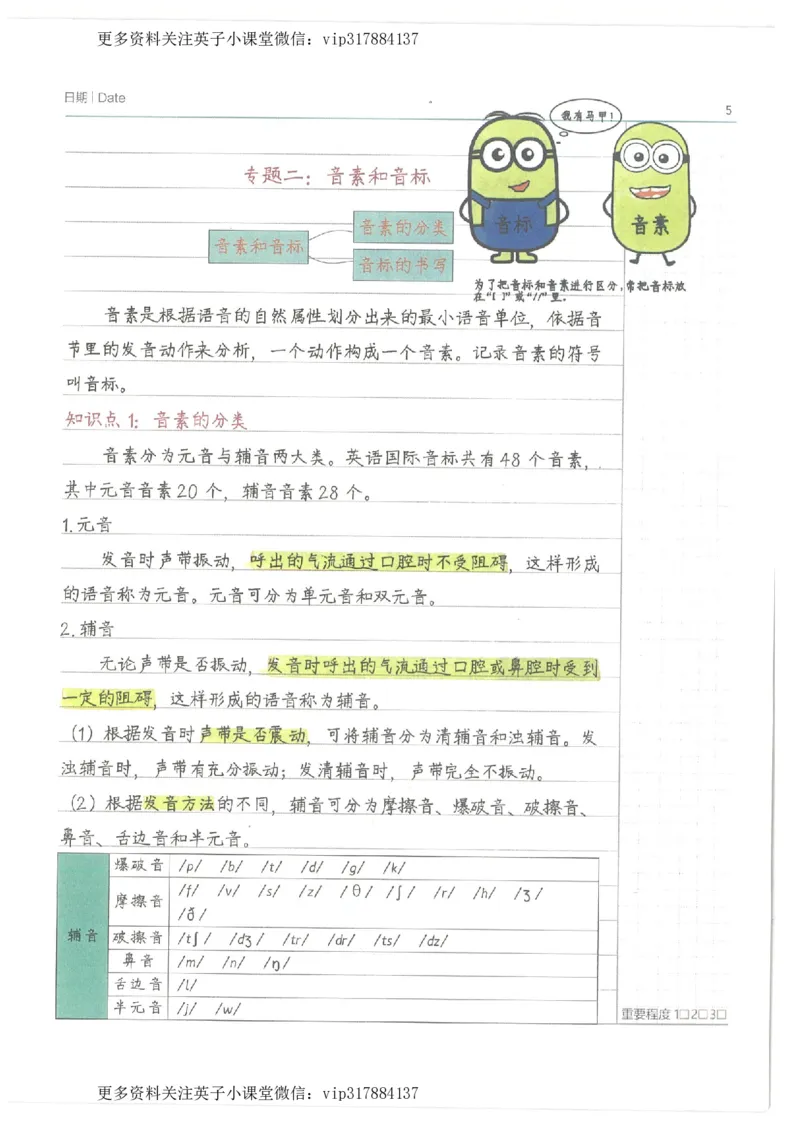 更多资料关注英子小课堂微信：vip317884137
日期 | Date
5
我有马甲！
专题二：音素和音标
音标
音素
音素和音标
音素的分类
音标的书写
为了把音标和音素进行区分，常把音标放
在“[ ]”或“//”里。
音素是根据语音的自然属性划分出来的最小语音单位，依据音
节里的发音动作来分析，一个动作构成一个音素。记录音素的符号
叫音标。
知识点1：音素的分类
音素分为元音与辅音两大类。英语国际音标共有48个音素，
其中元音音素20个，辅音音素28个。
1.元音
发音时声带振动，呼出的气流通过口腔时不受阻碍，这样形成
的语音称为元音。元音可分为单元音和双元音。
2.辅音
无论声带是否振动，发音时呼出的气流通过口腔或鼻腔时受到
一定的阻碍，这样形成的语音称为辅音。
（1）根据发音时声带是否震动，可将辅音分为清辅音和浊辅音。发
浊辅音时，声带有充分振动；发清辅音时，声带完全不振动。
（2）根据发音方法的不同，辅音可分为摩擦音、爆破音、破擦音、
鼻音、舌边音和半元音。
辅音
爆破音 /p/ /b/ /t/ /d/ /g/ /k/
摩擦音 /f/ /v/ /s/ /z/ /θ/ /ʃ/ /r/ /h/ /ʒ/
/ð/
破擦音 /tʃ/ /dʒ/ /tr/ /dr/ /ts/ /dz/
鼻音 /m/ /n/ /ŋ/
舌边音 /l/
半元音 /j/ /w/
重要程度 1□2□3□
更多资料关注英子小课堂微信：vip317884137